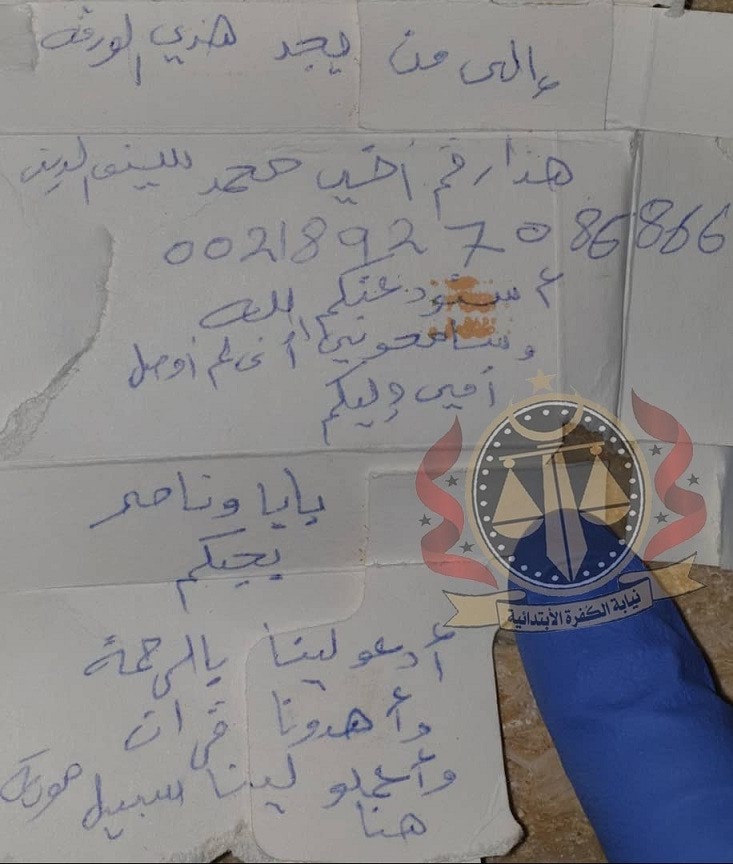 إلى من يجد هذي الورقه
هذا رقم أخي محمد سيف الدين
00218927086866
أستودعتكم الله
وسامحوني أنى لم أوصل
أمي وليكم
بابا وناصر
يحبكم
أدعو لينا بالرحمة
وأهدونا قرأن
وأعملو لينا سبيل
هنا
نيابة الكفرة الأبتدائية